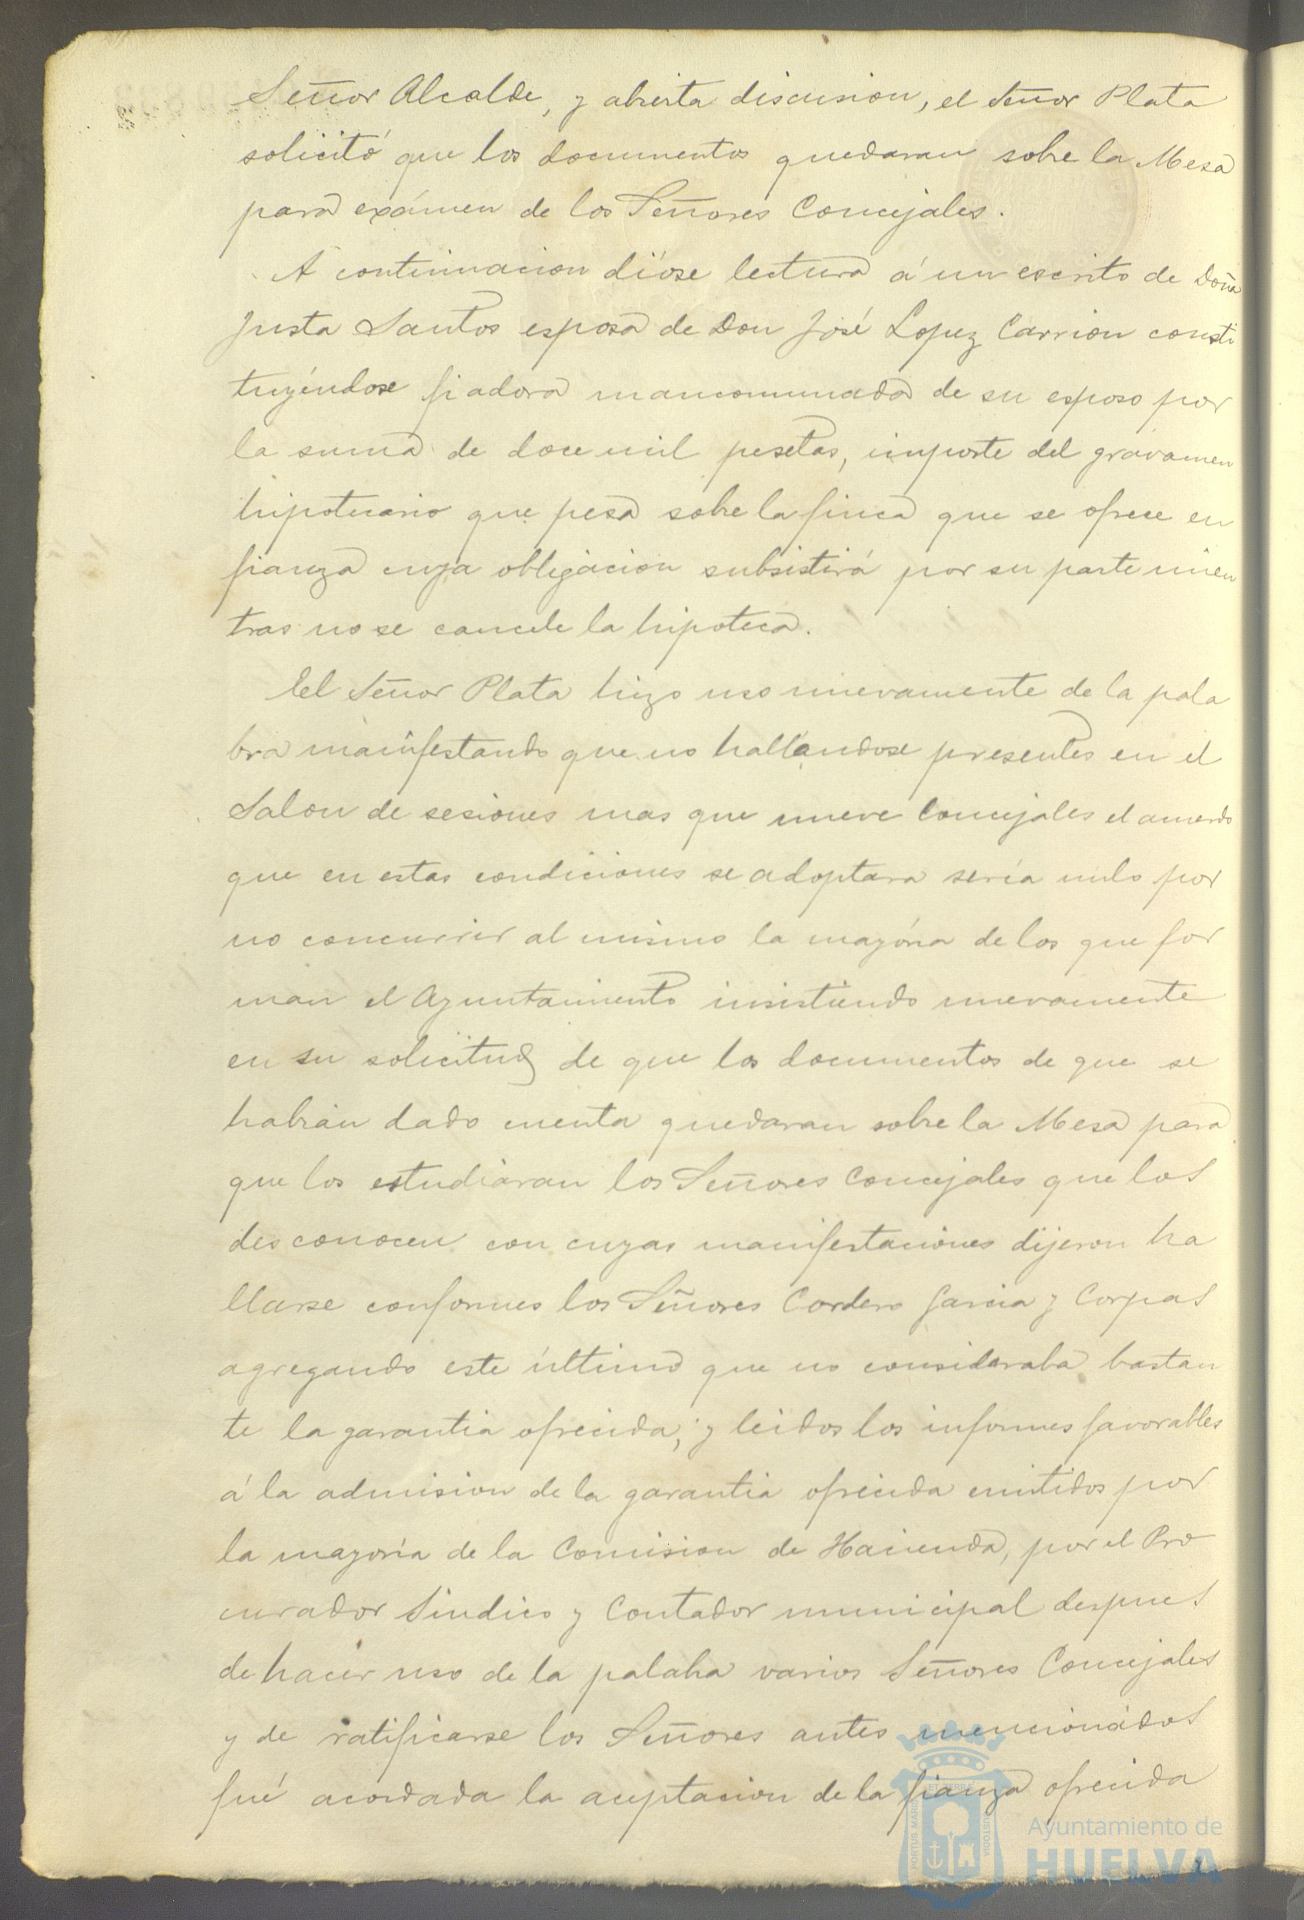 Señor Alcalde, y abierta discusion, el Señor Plata
solicitó que los documentos quedaran sobre la Mesa
para exámen de los Señores Concejales.
A continuacion dióse lectura á un escrito de Doña
Justa Santos esposa de Don José Lopez Carrion consti
tuyéndose fiadora mancomunada de su esposo por
la suma de doce mil pesetas, importe del gravamen
hipotecario que pesa sobre la finca que se ofrece en
fianza cuya obligacion subsistirá por su parte mien
tras no se cancele la hipoteca.
El Señor Plata hizo uso nuevamente de la pala
bra manifestando que no hallandose presentes en el
Salon de sesiones mas que nueve Concejales el acuerdo
que en estas condiciones se adoptara sería nulo por
no concurrir al mismo la mayoría de los que for
man el Ayuntamiento insistiendo nuevamente
en su solicitud de que los documentos de que se
habian dado cuenta quedaran sobre la Mesa para
que los estudiaran los Señores Concejales que los
desconocen con cuyas manifestaciones dijeron ha
llarse conformes los Señores Cordero Garcia y Corpas
agregando este último que no consideraba bastan
te la garantia ofrecida; y leidos los informes favorables
á la admision de la garantia ofrecida emitidos por
la mayoría de la Comision de Hacienda, por el Pro
curador Sindico y Contador municipal despues
de hacer uso de la palaba varios Señores Concejales
y de ratificarse los Señores antes mencionados
fué acordada la aceptacion de la fianza ofrecida
Ayuntamiento de
HUELVA